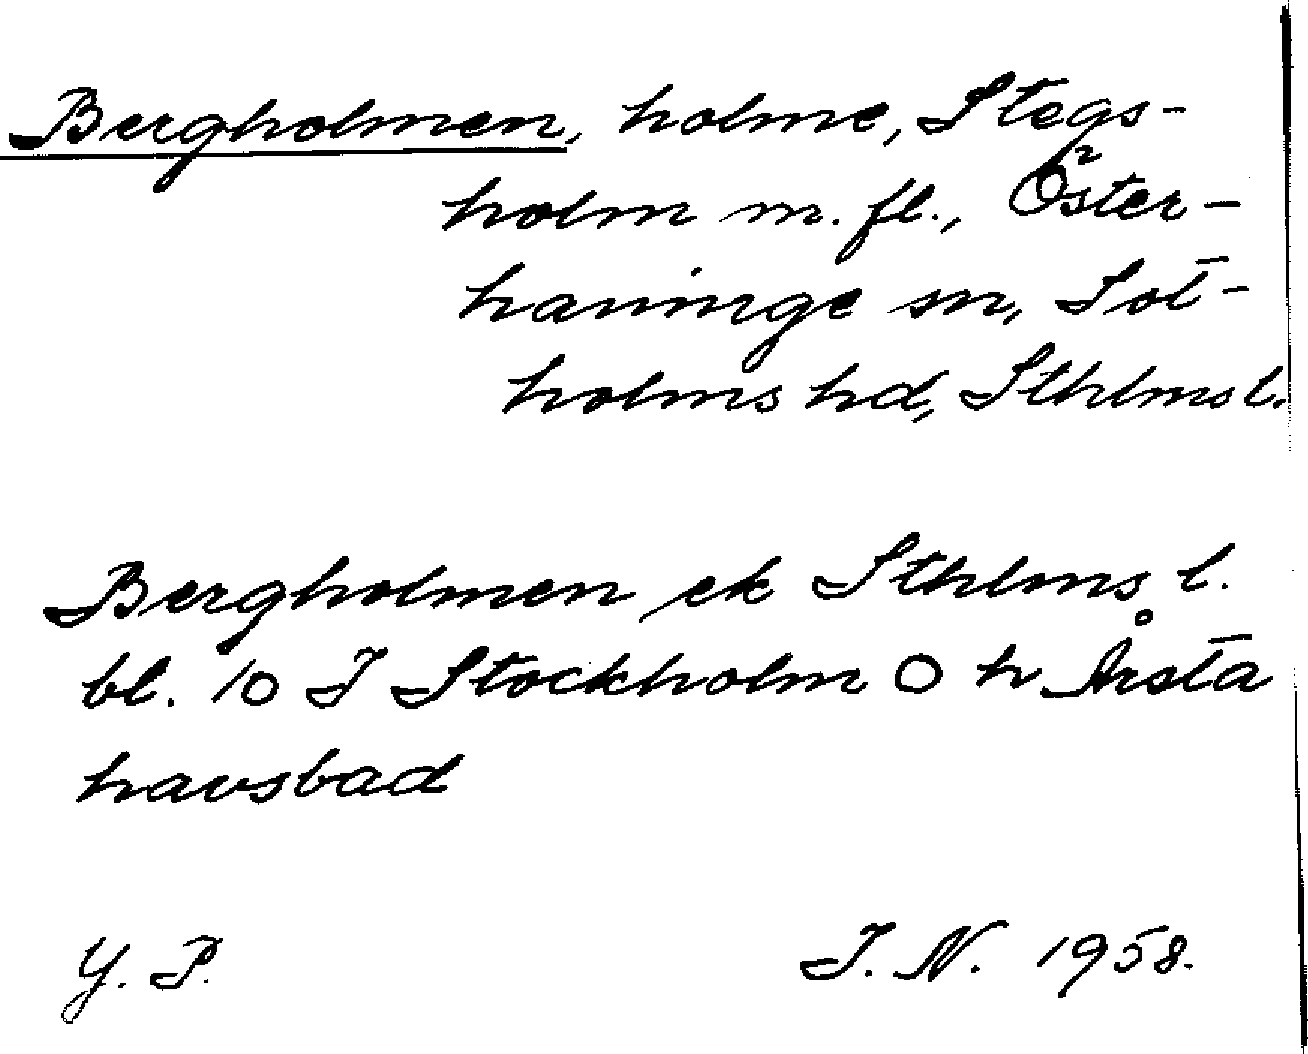 Bergholmen, holme, Stegs-
holm m. fl., Öster-
haninge sn, Sot-
holms hd, Sthlms l.
Bergholmen, ek Sthlms l.
bl. 10 I Stockholm O h Årsta
havsbad
Y. P. I. N. 1958.